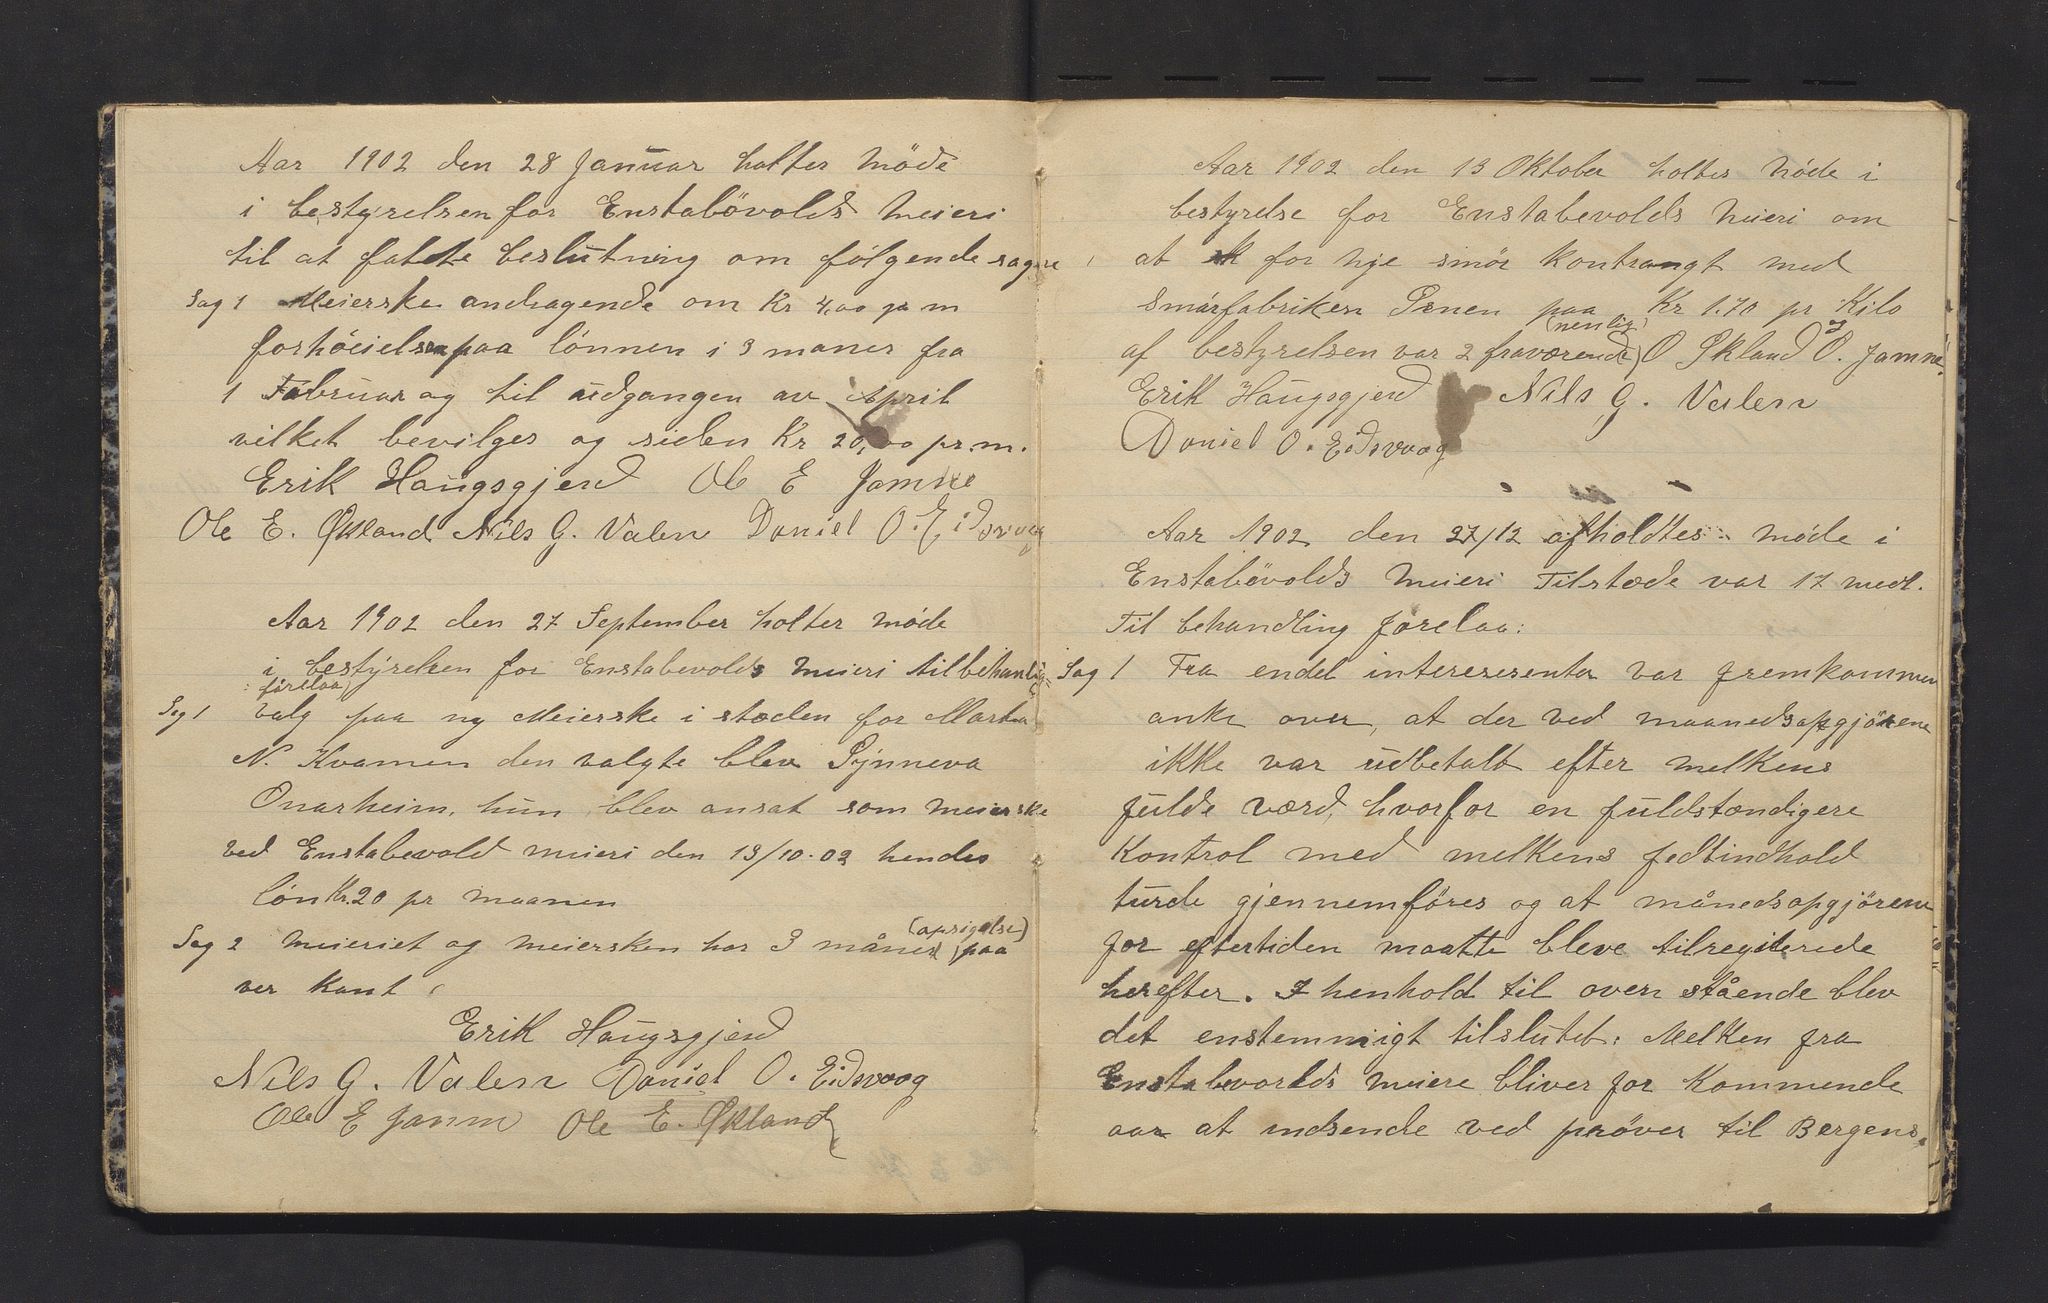 Aar 1902 den 28 Januar holtes Møde
i bestyrelsen for Enstabövolds Meieri
til at fatte beslutning om følgende sager
Sag 1 Meierske andragende om Kr 4,00 pr m
forhöielse paa lönnen i 3 maner fra
1 Februar og til udgangen av April
vilket bevilges og siden Kr 20,00 pr. m.
Erik Haugsgjerd Ole E Jamne
Ole E. Økland Nils G. Valen Daniel O. Eidsvaag
Aar 1902 den 27 September holtes møde
i bestyrelsen for Enstabevolds Meieri til behanlig=
forelaa
Sag 1 Valg paa ny Meierske i stæden for Martha
N. Kvamen den valgte blev Synneva
Onarheim, hun blev ansat som meierske
ved Enstabevold meieri den 13/10-02 hendes
løn Kr. 20 pr maanen
Sag 2 Meieriet og meiersken har 3 måners (opsigelse) paa
ver kant
Erik Haugsgjerd
Nils G. Valen Daniel O. Eidsvaag
Ole E Jamne Ole E. Økland
Aar 1902 den 13 Oktober holtes Møde i
bestyrelse for Enstabevolds Meieri om
at for nye smör kontrangt med
Smörfabriken paa Kr 1.70 pr Kilo
af bestyrelsen var 2 fraværende (nemlig) O Økland og O. Jamne.
Erik Haugsgjerd Nils G. Valen
Daniel O. Eidsvaag
Aar 1902 den 27/12 afholdtes møde i
Enstabövolds Meieri Tilstæde var 17 medl.
Til behandling forelaa:
Sag 1 Fra endel interesserenter var fremkommen
anke over, at der ved maanedsopgjörene
ikke var udbetalt efter melkens
fulde værd, hvorfor en fuldstændigere
Kontrol med melkens fedtindhold
turde gjennemföres og at månedsopgjörene
for eftertiden maatte bleve tilregiterede
herefter. I henhold til oven stående blev
det enstemmigt tilslutet: Melken fra
Enstabevorlds meiere bliver for Kommende
aar at indsende ved prøver til Bergens